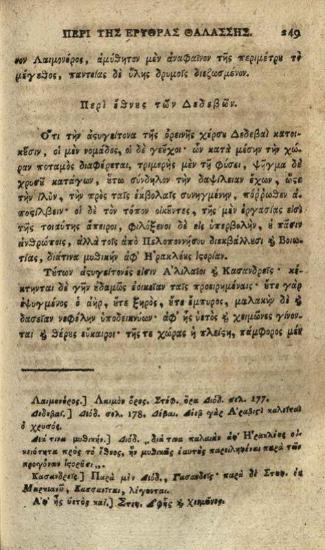 ΠΕΡΙ ΤΗΣ ΕΡΥΘΡΑΣ ΘΑΛΑΣΣΗΣ. 249
νον Λαιμονέρος, ἀμύθητον μὲν ἀναφαῖνον τῆς περιμέτρυ τὸ
μέγεθος, παντείας δὲ ὕλης δρυμοῖς διεζωσμένον.
Περὶ ἔθνυς τῶν Δεδεβῶν.
Ὅτι τὴν ἀςυγείτονα τῆς ὀρεινῆς χέρσυ Δεδεβαὶ κατοι-
κῦσιν, οἱ μὲν νομάδες, οἱ δὲ γεῦχοι· ὧν κατὰ μέσην τὴν χώ-
ραν ποταμὸς διαφέρεται, τριμερὴς μὲν τῇ φύσει, ψῆγμα δὲ
χρυσῦ κατάγων, ὅτω σύνδηλον τὴν δαψίλειαν ἔχων, ὥςε
τὴν ἰλὺν, τὴν πρὸς ταῖς ἐκβολαῖς συνηγμένην, πόῤῥωθεν ἀ-
ποςίλβειν· οἱ δὲ τὸν τόπον οἰκῦντες, τῆς μὲν ἐργασίας εἰσὶ
τῆς τοιαύτης ἄπειροι, φιλόξενοι δὲ εἰς ὑπερβολὴν, ὐ πᾶσιν
ἀνθρώποις, ἀλλὰ τοῖς ἀπὸ Πελοποννήσυ διεκβάλλυσι ᾗ Βοιω-
τίας, διά τινα μυθικὴν ἀφ' Ἡρακλέυς ἱςορίαν.
Τύτων ἀςυγείτονές εἰσιν Ἀλιλαῖοι ᾗ Κασανδρεῖς· κέ-
κτηνται δὲ γῆν ὐδαμῶς ἐοικεῖαν ταῖς προειρημέναις· ὔτε γὰρ
ἐψυγμένος ὁ ἀὴρ, ὔτε ξηρὸς, ὔτε ἔμπυρος, μαλακὴν δὲ ᾗ
δασεῖαν νεφέλην ὑποδεικνύων· ἀφ' ἧς ὑετὸς ᾗ χειμῶνες γίνον-
ται ᾗ θέρυς εὔκαιροι· τῆς τε χώρας ἡ πλείςη, πάμφορος μὲν
Λαιμονέρος.] Λαιμὸν ὄρος. Στέφ. ὅρα Διόδ. σελ. 177.
Δεδεβαί.] Διόδ. σελ. 178. Δέβαι. Δεὲβ γὰρ Ἄραβιςὶ καλεῖται
ὁ χρυσός.
Διά τινα μυθικήν.] Διόδ. „ διά τινα παλαιὰν ἀφ' Ἡρακλέυς οἰ-
κειότητα πρὸς τὸ ἔθνος, ἣν μυθικῶς ἑαυτὺς παρειληφέναι παρὰ τῶν
προγόνων ἱςορῦσι. „
Κασανδρεῖς.] Παρὰ μὲν Διόδ., Γασανδεῖς· παρὰ δὲ Στεφ. ἐκ
Μαρκιανῦ, Κασσανῖται, λέγονται.
Ἀφ' ἧς ὑετὸς καὶ.] Στεφ. Ἀφῆς ᾗ χειμῶνες.